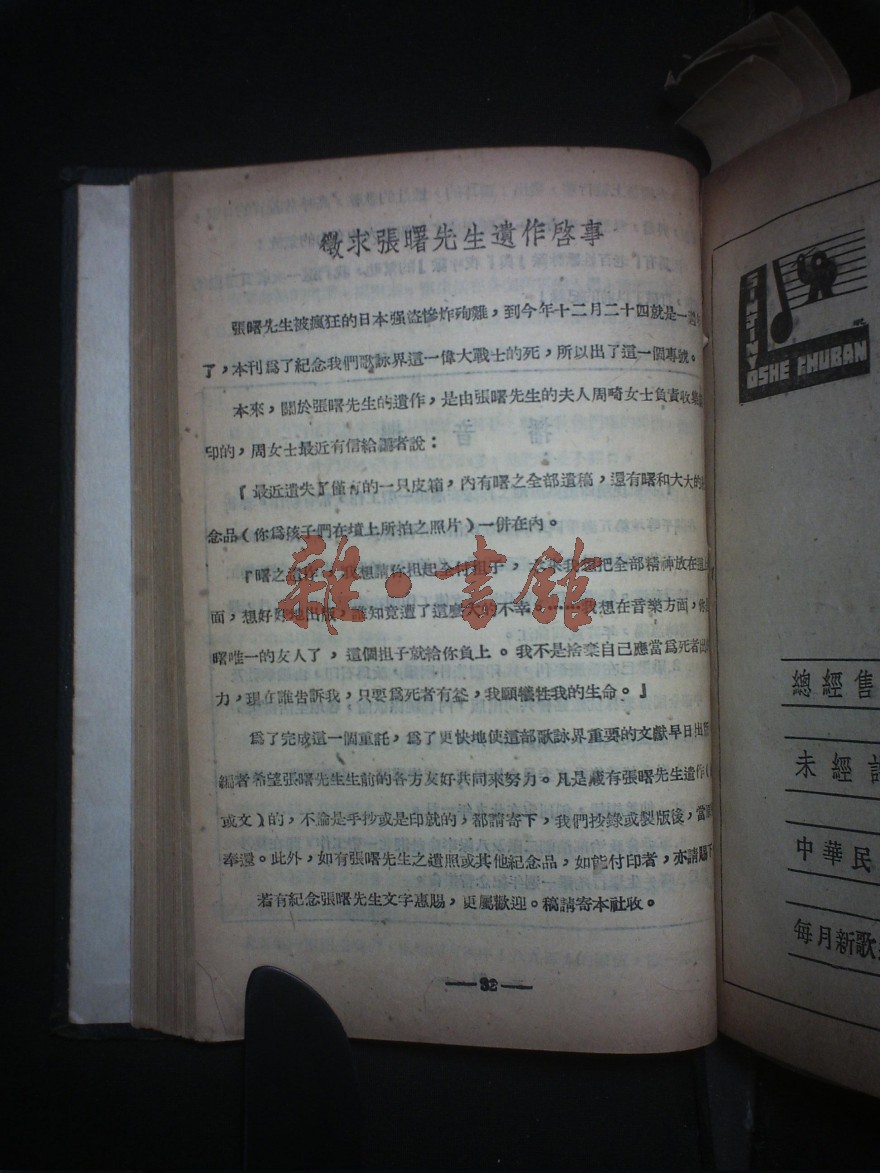 徵求張曙先生遺作啓事
張曙先生被瘋狂的日本强盜慘炸殉難，到今年十二月二十四就是一週
了，本刊爲了紀念我們歌詠界這一偉大戰士的死，所以出了這一個專號。
本來，關於張曙先生的遺作，是由張曙先生的夫人周畸女士負責收集
印的，周女士最近有信給編者說：
『最近遺失了僅有的一只皮箱，內有曙之全部遺稿，還有曙和大大的
念品（你爲孩子們在墳上所拍之照片）一倂在內。
『曙之遺作，我想請你担起全付担子，本來我想把全部精神放在這
面，想好好地出版，誰知竟遭了這麽大的不幸。……我想在音樂方面，你
曙唯一的友人了，這個担子就給你負上。我不是捨棄自己應當爲死者出
力，現在誰告訴我，只要爲死者有益，我願犧牲我的生命。』
爲了完成這一個重託，爲了更快地使這部歌詠界重要的文獻早日出
編者希望張曙先生生前的各方友好共同來努力。凡是藏有張曙先生遺作（
或文）的，不論是手抄或是印就的，都請寄下，我們抄錄或製版後，當
奉還。此外，如有張曙先生之遺照或其他紀念品，如能付印者，亦請賜下
若有紀念張曙先生文字惠賜，更屬歡迎。稿請寄本社收。
—32—
雜·書館
OSHE CHUBAN
總經售
未經
中華民
每月新歌